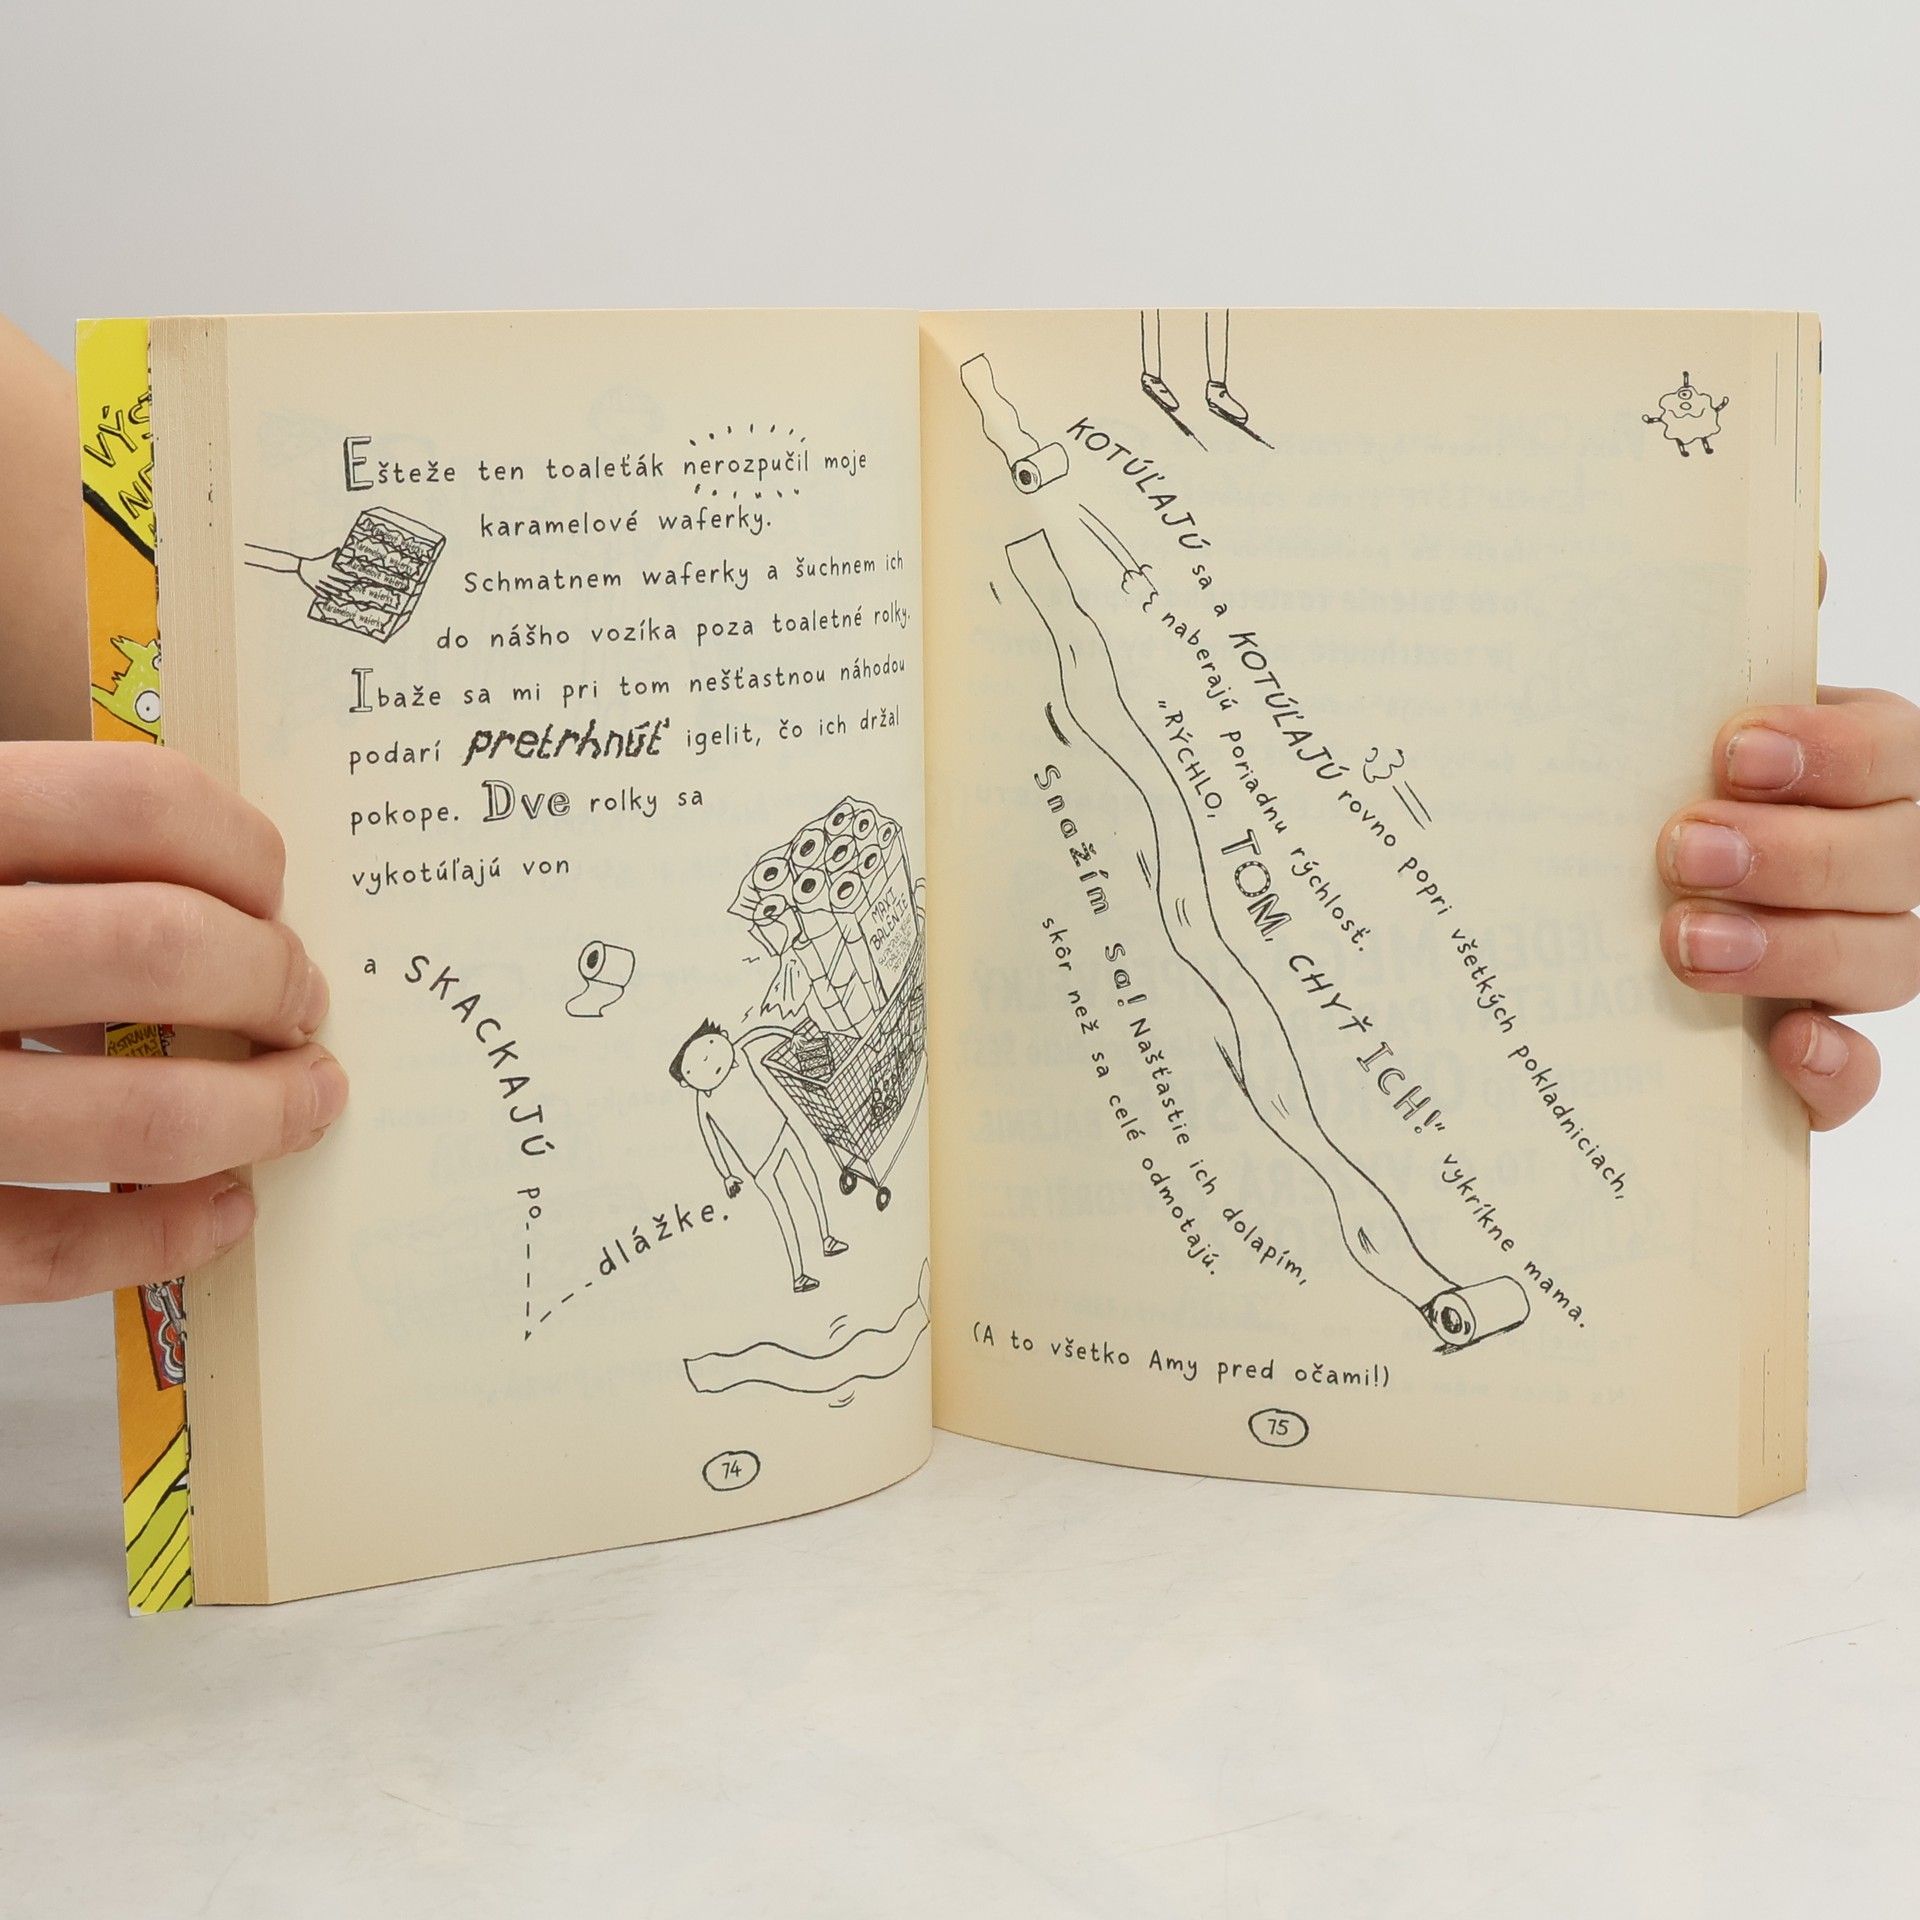 Ešteže ten toaleťák nerozpučil moje
karamelové waferky.
Schmatnem waferky a šuchnem ich
do nášho vozíka poza toaletné rolky.
Ibaže sa mi pri tom nešťastnou náhodou
podarí pretrhnúť igelit, čo ich držal
pokope. Dve rolky sa
vykotúľajú von
a SKACKAJÚ po
dlážke.
MAXI
BALENIE
74
KOTÚĽAJÚ sa a KOTÚĽAJÚ rovno popri všetkých pokladniciach,
naberajú poriadnu rýchlosť.
„RÝCHLO, TOM, CHYŤ ICH!“ vykríkne mama.
Snažím sa! Našťastie ich dolapím,
skôr než sa celé odmotajú.
(A to všetko Amy pred očami!)
75